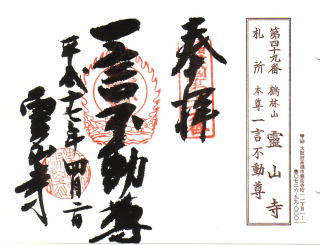 奉拝
一言不動尊
平成十七年四月二日
霊山寺
第四十九番 鶴林山
札所 本尊 一言不動尊
靈山寺